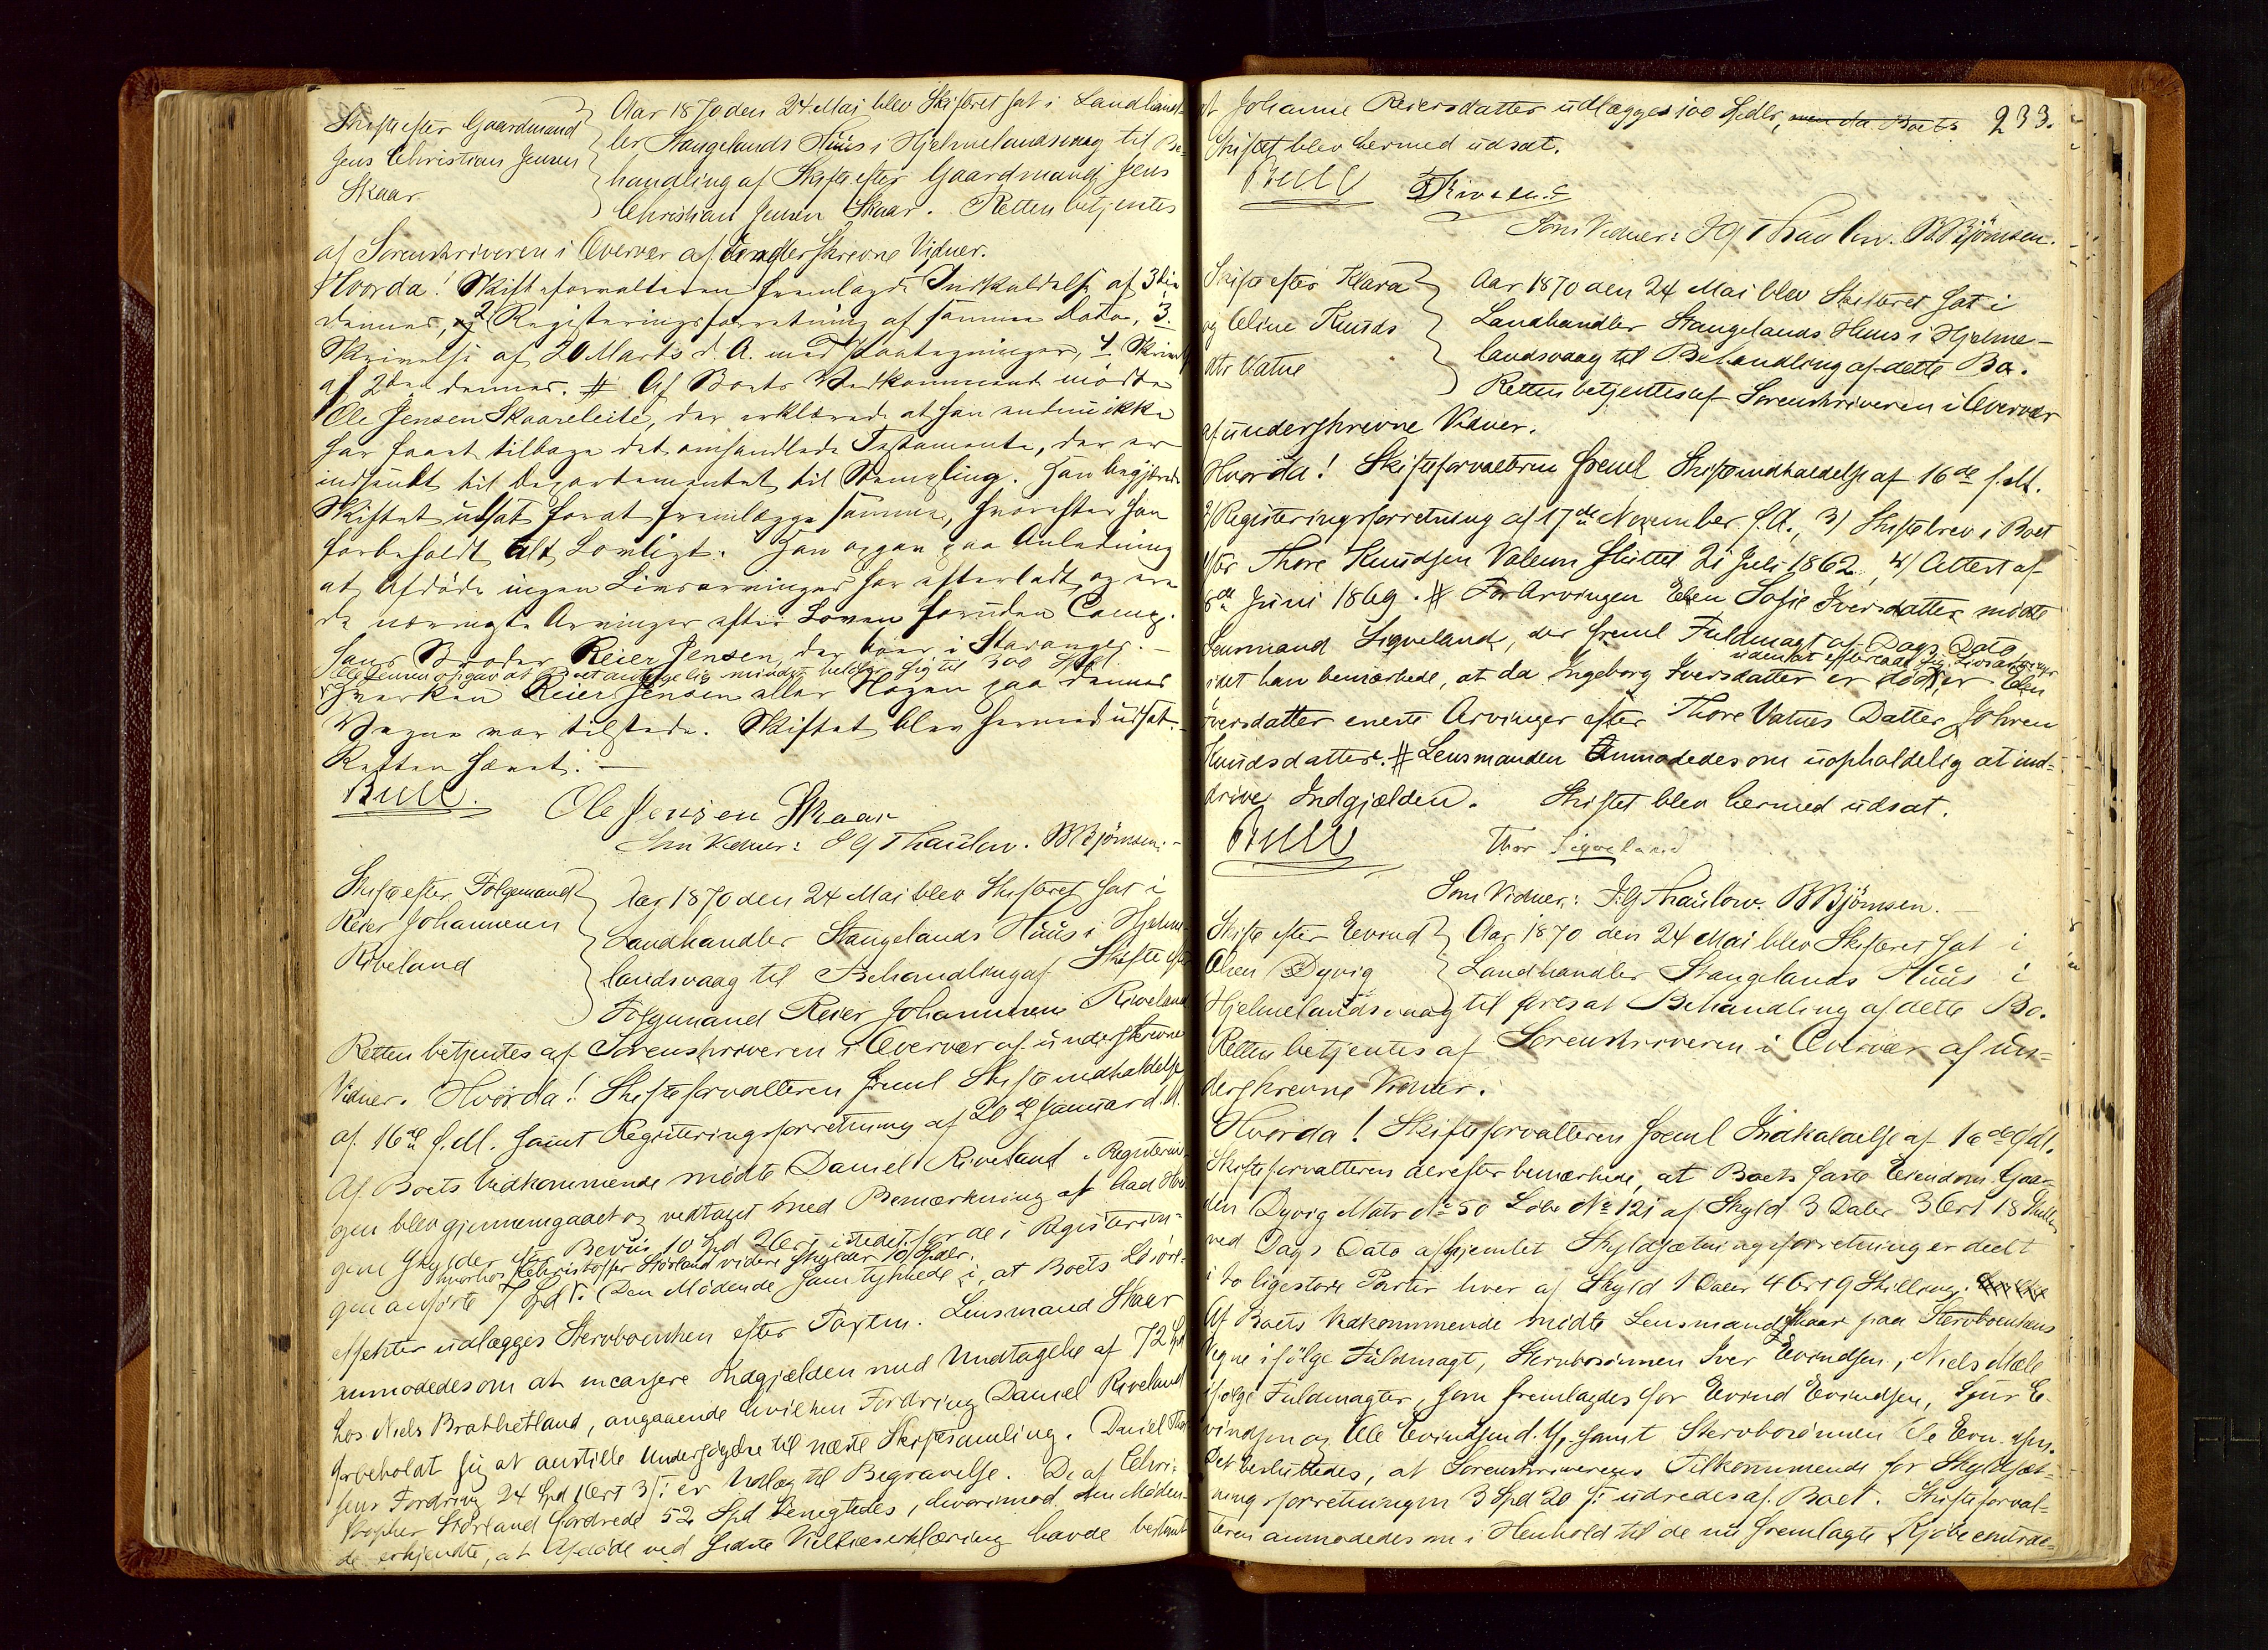 Skifte efter Gaardmand
Jens Christian Jensen
Skaar
Aar 1870 den 24 Mai blev Skifteret sat i Landhand-
ler Stangelands Huus i Hjelmelandsvaag til Be-
handling af Skifte efter Gaardmand Jens
Christian Jensen Skaar. Retten betjentes
af Sorenskriveren i Overvær af underskrevne Vidner.
Hvorda! Skifteforvalteren fremlagde Indkaldelse af 3die
dennes, 2 Registreringsforretning af samme Dato, 3.
Skrivelse af 20 Marts d. A. med Paategninger, 4 Skrivelse
af 2den dennes. # Af Boets Vedkommende mødte
Ole Jensen Skaareleite, der erklærede at han endnu ikke
har faaet tilbage det omhandlede Testamente, der er
indsendt til Departementet til Stempling. Han begjærede
Skiftet udsat for at fremlægge samme, hvorefter han
forbeholdt alt Lovligt. Han opgav paa Anledning
at Afdøde ingen Livsarvinger har efterladt og ere
de nærmeste Arvinger efter Loven foruden Comp.
hans Broder Reier Jensen, der boer i Stavanger. —
Ole Jensen opgav at Boet antagelig mindst beløber sig til 300 Spd.
Hverken Reier Jensen eller Nogen paa dennes
Vegne var tilstede. Skiftet blev hermed udsat.
Retten hævet. —
Bull.
Ole Jensen Skaar
Som Vidner: J G Thaulow. B Bjørnsen. —
Skifte efter Følgemand
Reier Johannesen
Riveland
Aar 1870 den 24 Mai blev Skifteret sat i
Landhandler Stangelands Huus i Hjelme-
landsvaag til Behandling af Skifte efter
Følgemand Reier Johannesen Riveland
Retten betjentes af Sorenskriveren i Overvær af underskrevne
Vidner. Hvorda! Skifteforvalteren freml Skifteindkaldelse
af 16de f. M. samt Registreringsforretning af 20de Januar d. A.
Af Boets Vedkommende mødte Daniel Riveland. Registerin-
gen blev gjennemgaaet og vedtaget med Bemærkning at Aad
gene skylder efter Beviis 10 Spd 2 Ort istedetfor de i Registerin-
hvorhos Christoffer Hørland videre skylder 10 Spdlr.
gen anførte 7 Spd. Den Mødende samtykkede i, at Boets Løsøre-
effekter udlægges Stervboenken efter Taxten. Lensmand Skaar
anmodedes om at incassere Indgjælden med Undtagelse af 72 Spd
hos Niels Brathetland, angaaende hvilken Fordring Daniel Riveland
forbeholdt sig at anstille Undersøgelse til næste Skiftesamling. Daniel
sens Fordring 24 Spd 1 Ort 3 s: er Udlæg til Begravelse. De af Chri-
stopher Hørland fordrede 52 Spd benegtedes, hvorimod den Møden-
de erkjendte, at Afdøde ved sidste Villieserklæring havde bestemt
233.
at Johanne Reiersdatter udlægges 100 Spdlr, men da Boets
Skiftet blev hermed udsat.
Bull
Som Vidner: J G Thaulow. B Bjørnsen.
Skifte efter Klara
og Oline Knuds
dtr Vatne
Aar 1870 den 24 Mai blev Skifteret sat i
Landhandler Stangelands Huus i Hjelme-
landsvaag til Behandling af dette Bo.
Retten betjentes af Sorenskriveren i Overvær
af underskrevne Vidner.
Hvorda! Skifteforvalteren freml Skifteindkaldelse af 16de f. M.
2/ Registreringsforretning af 17de November f. A., 3/ Skiftebrev i Boet
efter Thore Knudsen Valem sluttet 21 Juli 1862, 4/ Attest af
8de Juni 1869. # For Arvingen Elen Sofie Iversdatter mødte
Lensmand Sigveland, der freml Fuldmagt af Dags Dato
idet han bemærkede, at da Ingeborg Iversdatter er død
uden at efterlade sig Livsarvinger
er Elen
Iversdatter eneste Arvinger efter Thore Vatnes Datter Johren
Knudsdatter. # Lensmanden anmodedes om uopholdelig at ind-
drive Indgjælden. Skiftet blev hermed udsat.
Bull
Thor Sigveland
Som Vidner: J. G Thaulow. B Bjørnsen. —
Skifte efter Eevind
Olsen Dyvig
Aar 1870 den 24 Mai blev Skifteret sat i
Landhandler Stangelands Huus i
Hjelmelandsvaag til fortsat Behandling af dette Bo.
Retten betjentes af Sorenskriveren i Overvær af un-
derskrevne Vidner.
Hvorda! Skifteforvalteren freml Indkaldelse af 16de f. M.
Skifteforvalteren derefter bemærkede, at Boets faste Eiendom Gaar-
den Dyvig Matr No 50 Løbe No 121 af Skyld 3 Daler 3 Ort 18 Skilling
ved Dags Dato afhjemlet Skyldsætningsforretning er deelt
i to ligestore Parter hver af Skyld 1 Daler 4 Ort 9 Skilling.
Af Boets Vedkommende mødte Lensmand Skaar paa Stervboenkens
Vegne ifølge Fuldmagt, Stervbosønnen Iver Eevindsen, Niels Mæle
ifølge Fuldmagter, som fremlagdes for Eevind Eevindsen, Sjur E-
vindsen og Ole Eevindsen d. Y, samt Stervbosønnen Ole Eevindsen.
Det besluttedes, at Sorenskriverens Tilkommende for Skyldsæt-
ningsforretningen 3 Spd 20 s: udredes af Boet. Skifteforval-
teren anmodedes om i Henhold til de nu fremlagte Kjøbecontrac-